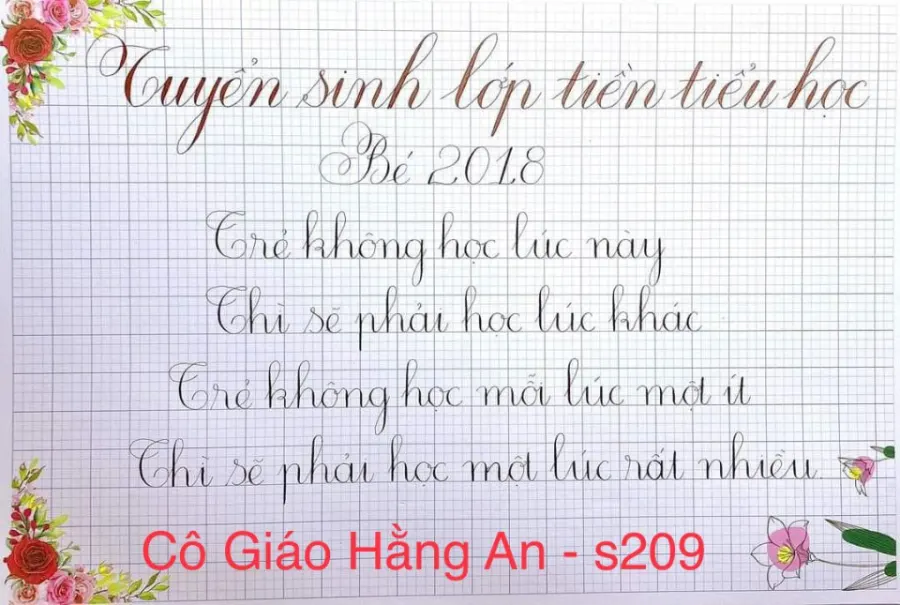 Tuyển sinh lớp tiền tiểu học
Bé 2018
Trẻ không học lúc này
Thì sẽ phải học lúc khác
Trẻ không học mỗi lúc một ít
Thì sẽ phải học một lúc rất nhiều
Cô Giáo Hằng An - s209